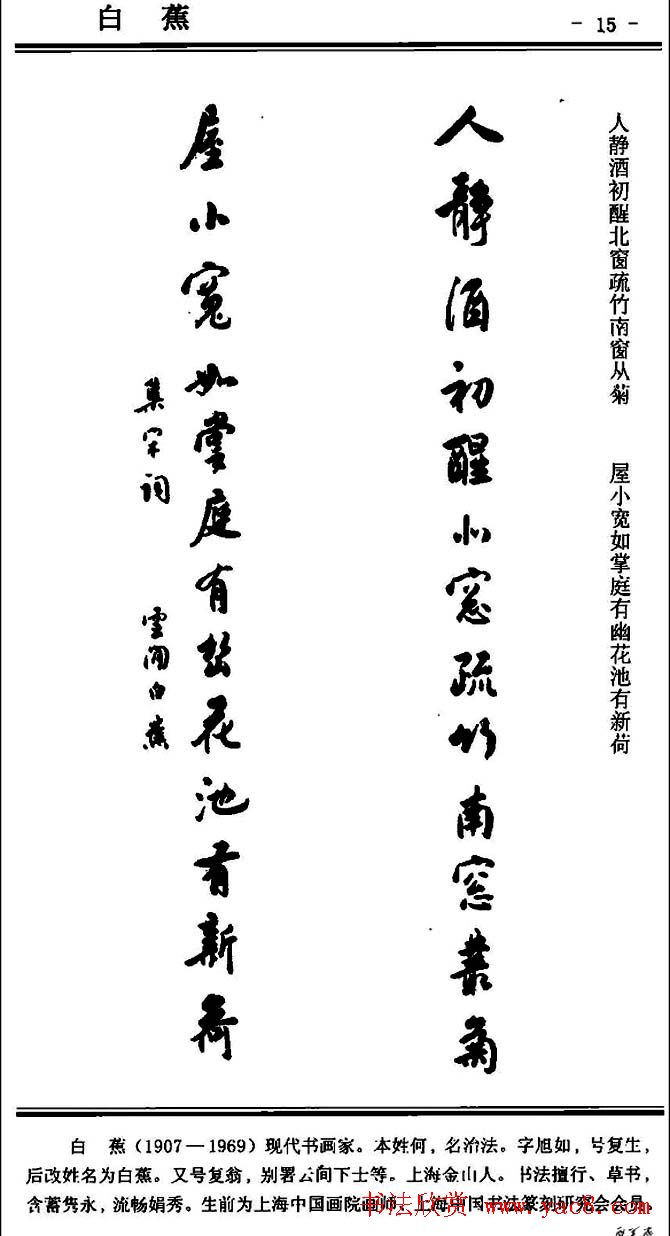 白 蕉
- 15 -
人静酒初醒北窗疏竹南窗从菊 屋小宽如掌庭有幽花池有新荷
人静酒初醒北窓疏竹南窓叢菊
屋小寬如掌庭有幽花池有新荷
集宋词
雲间白蕉
白 蕉(1907—1969)现代书画家。本姓何,名治法。字旭如,号复生,
后改姓名为白蕉。又号复翁,别署云间下士等。上海金山人。书法擅行、草书,
含蓄隽永,流畅娟秀。生前为上海中国画院画师、上海中国书法篆刻研究会会员。
书法欣赏 www.yac8.com